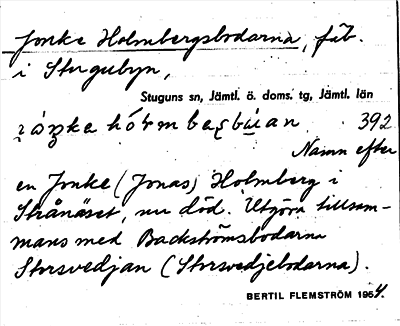 Jonke Holmbergsbodarna, fäb.
i Stugubyn,
Stuguns sn, Jämtl. ö. doms. tg, Jämtl. län
392
Namn efter
en Jonke (Jonas) Holmberg i
Strånäset, nu död. Utgöra tillsam-
mans med Backströmsbodarna
Storsvedjan (Storsvedjebodarna).
BERTIL FLEMSTRÖM 1954.